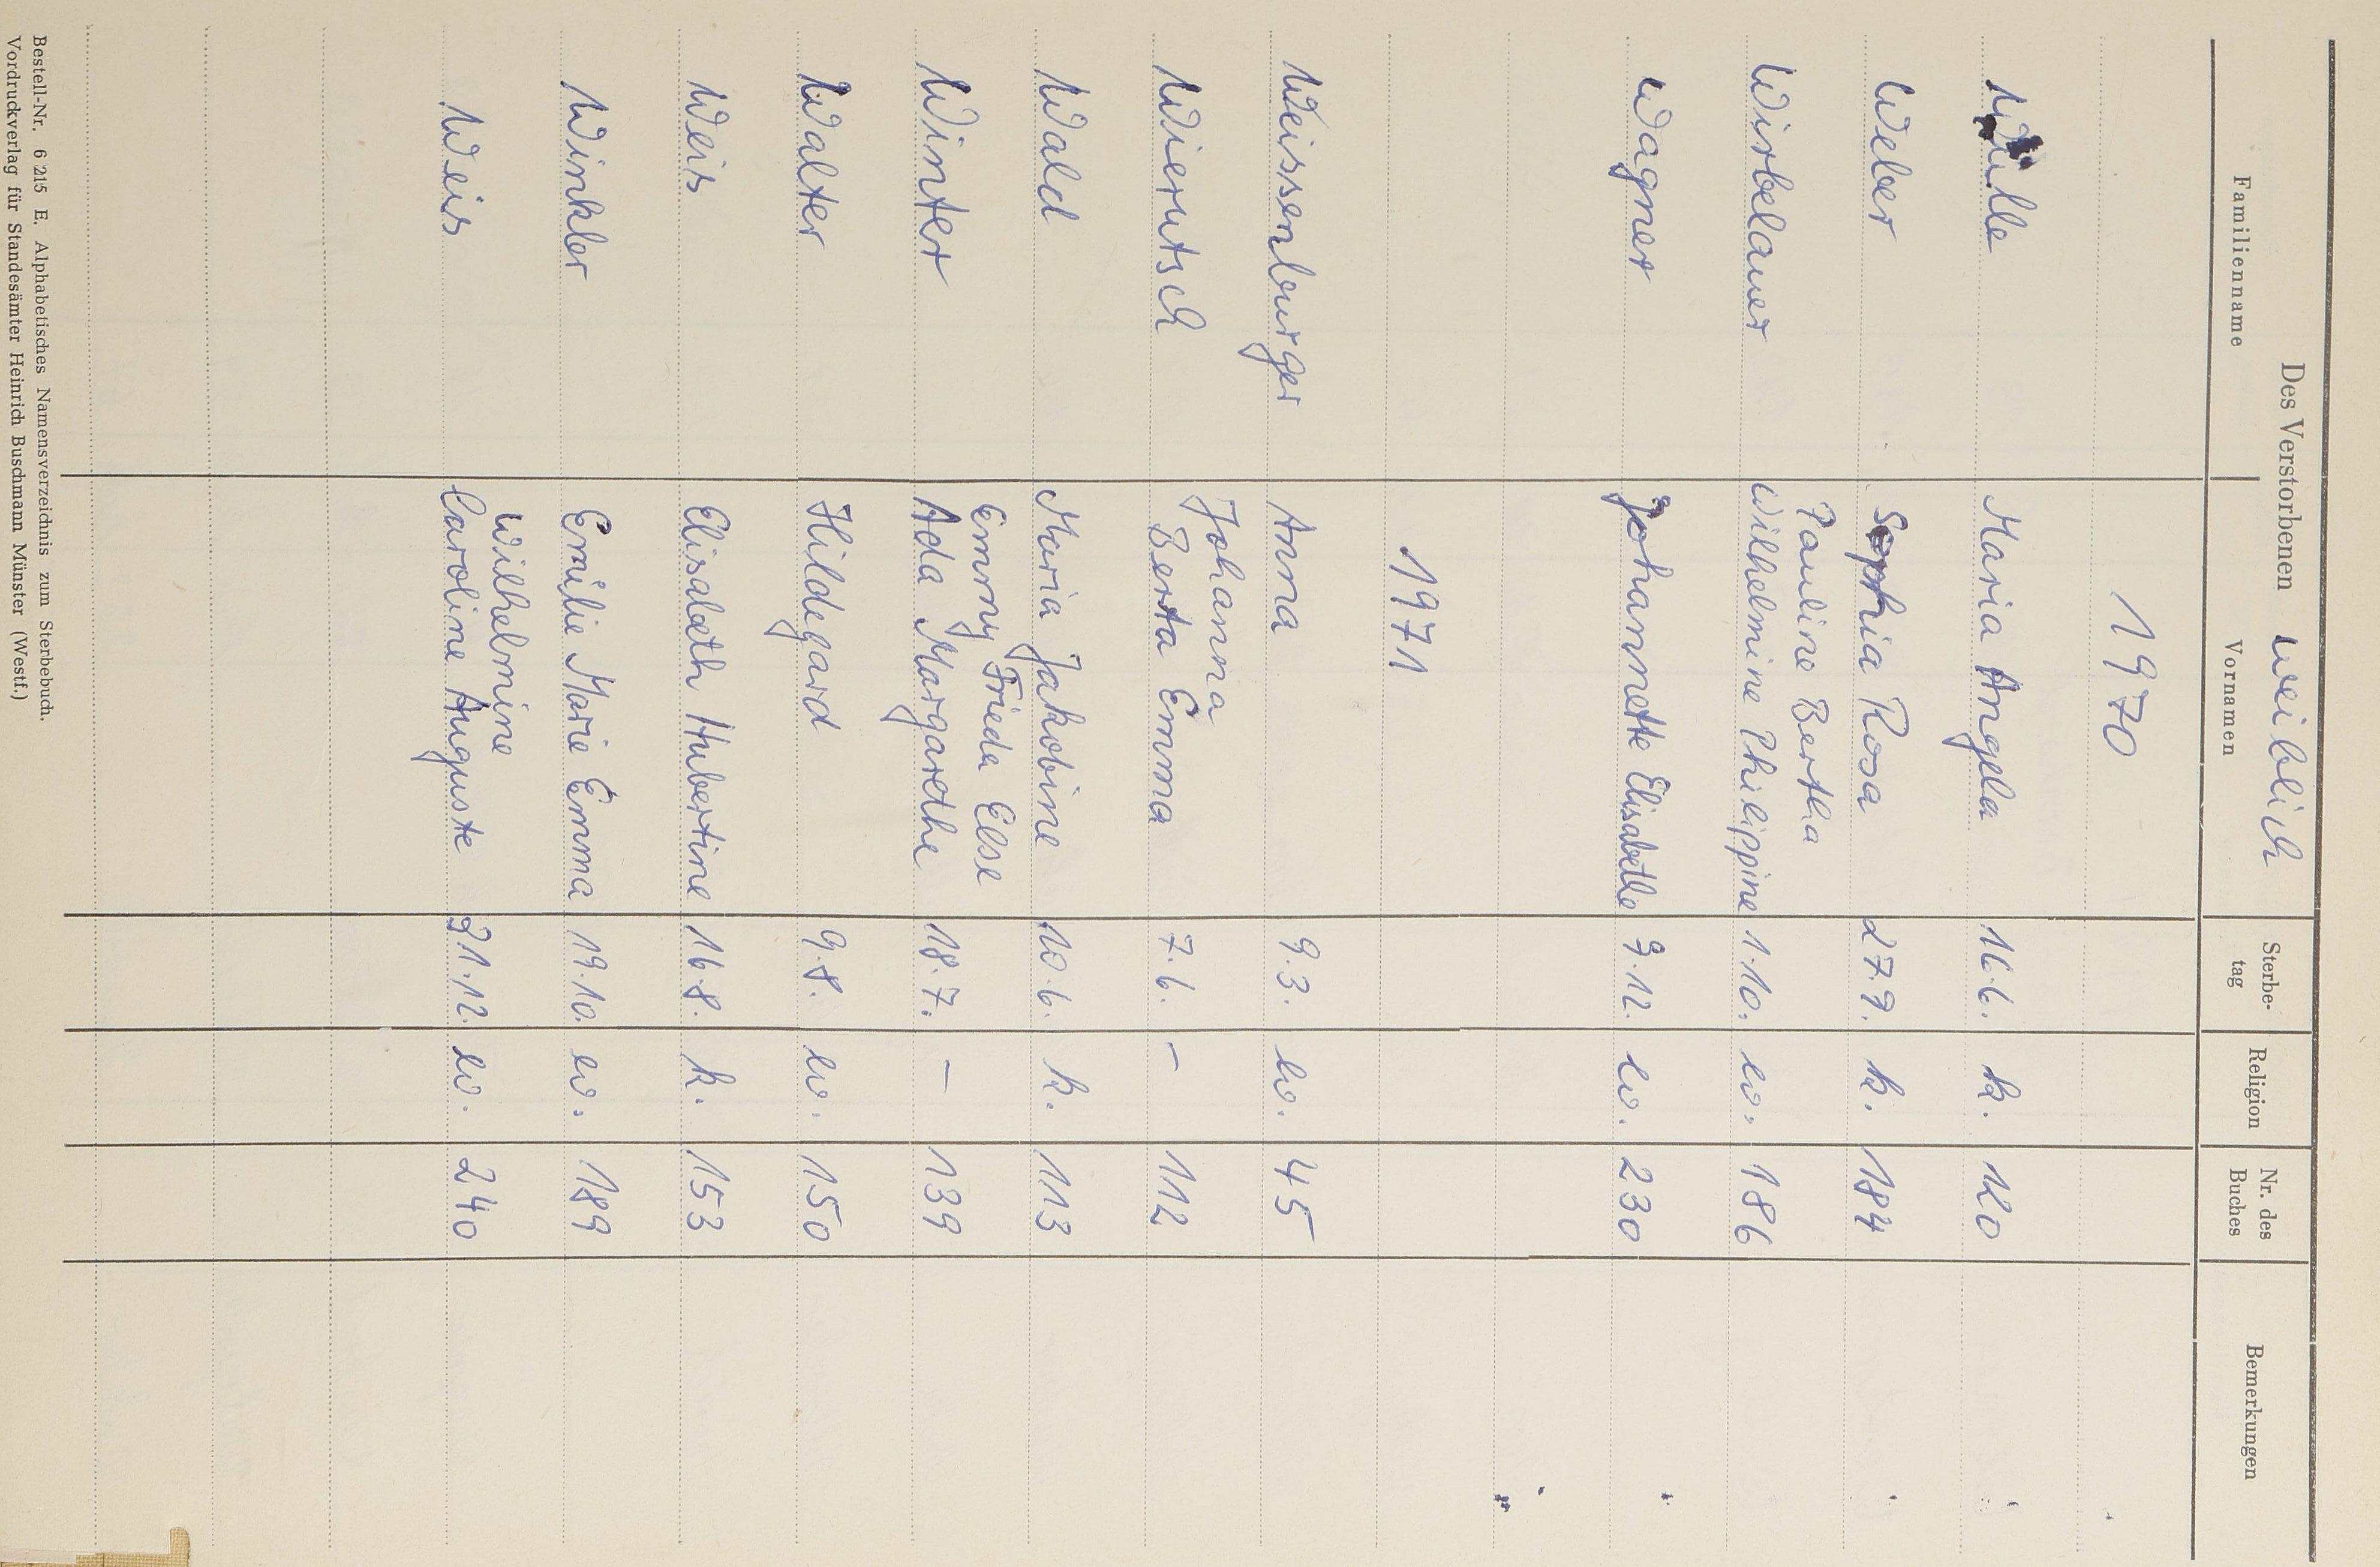 Des Verstorbenen weiblich
Familienname Vornamen Sterbe-tag Religion Nr. des Buches Bemerkungen
1970
Wille Maria Angela 16.6. k. 120
Weber Sophia Rosa 27.9. k. 184
Pauline Bertha
Wirbelauer Wilhelmine Philippine 1.10. ev. 186
Wagner Johannette Elisabethe 9.12. ev. 230
1971
Weissenburger Anna 9.3. ev. 45
Johanna
Wierutsch Berta Emma 7.6. – 112
Wald Maria Jakobine 10.6. k. 113
Emmy Frieda Else
Winter Ada Margarethe 18.7. – 139
Walter Hildegard 9.8. ev. 150
Weis Elisabeth Hubertine 16.8. k. 153
Winkler Emilie Marie Emma 19.10. ev. 189
Wilhelmine
Weis Caroline Auguste 21.12. ev. 240
Bestell-Nr. 6 215 E. Alphabetisches Namensverzeichnis zum Sterbebuch.
Vordruckverlag für Standesämter Heinrich Buschmann Münster (Westf.)